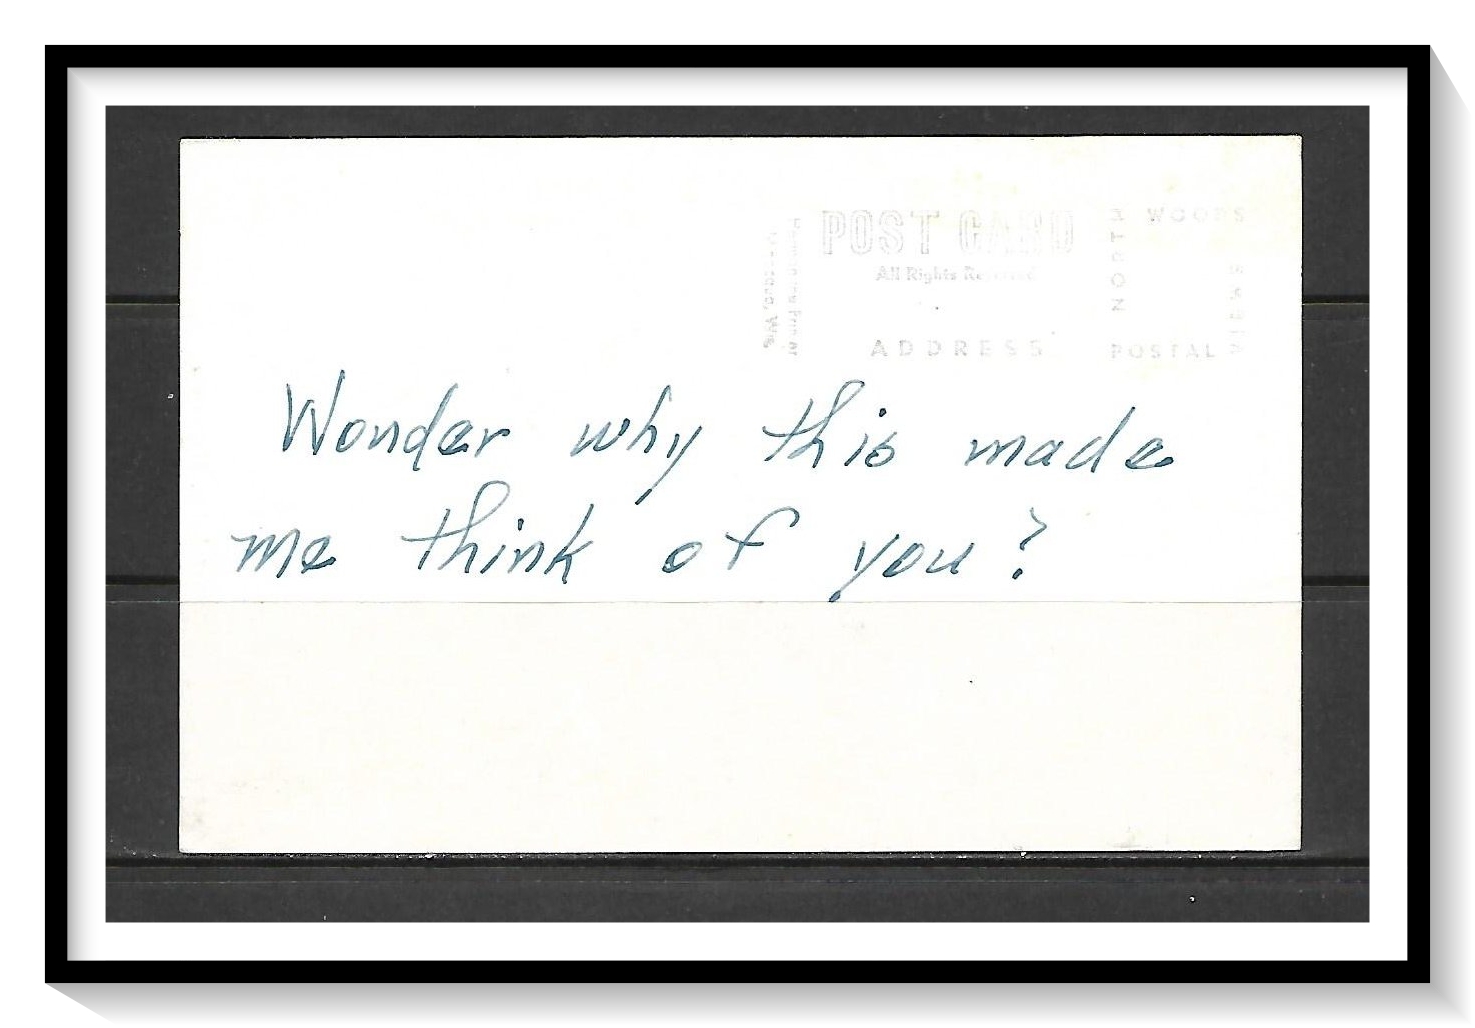 POST CARD
All Rights Reserved
ADDRESS
NORTH
WOODS
POSTAL
VIEWS
Wonder why this made
me think of you?